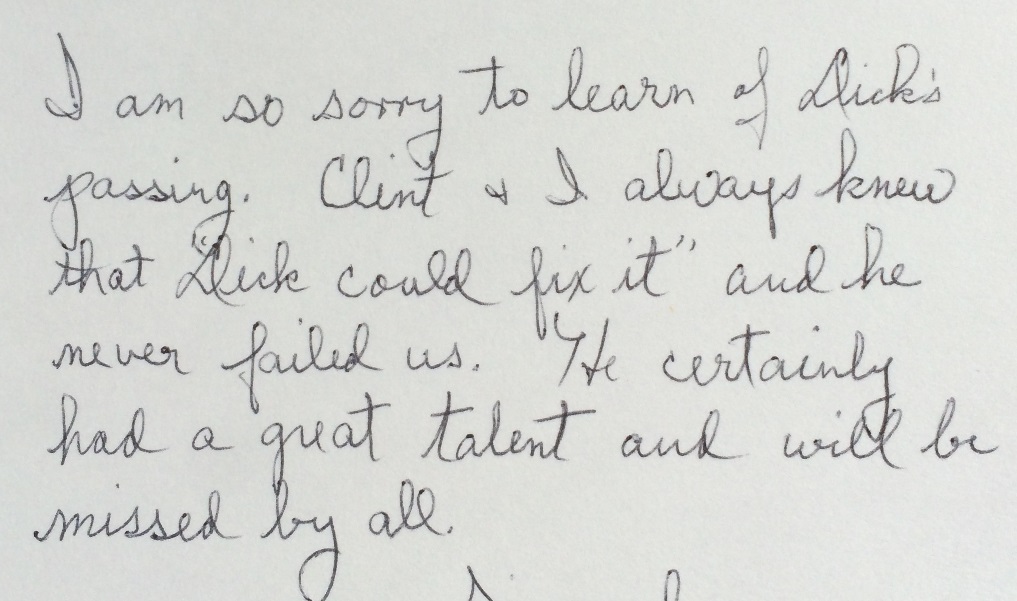 I am so sorry to learn of Dick's
passing. Clint & I always knew
that "Dick could fix it" and he
never failed us. He certainly
had a great talent and will be
missed by all.